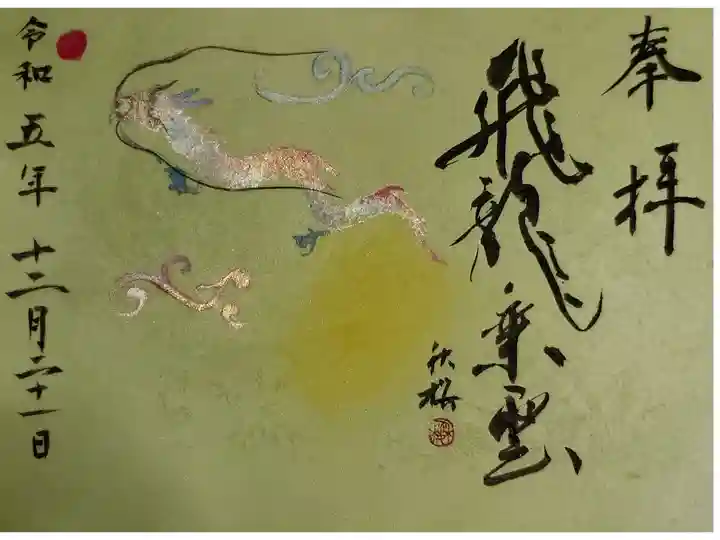 奉拝
飛龍乗雲
秋桜
令和五年 十二月二十一日